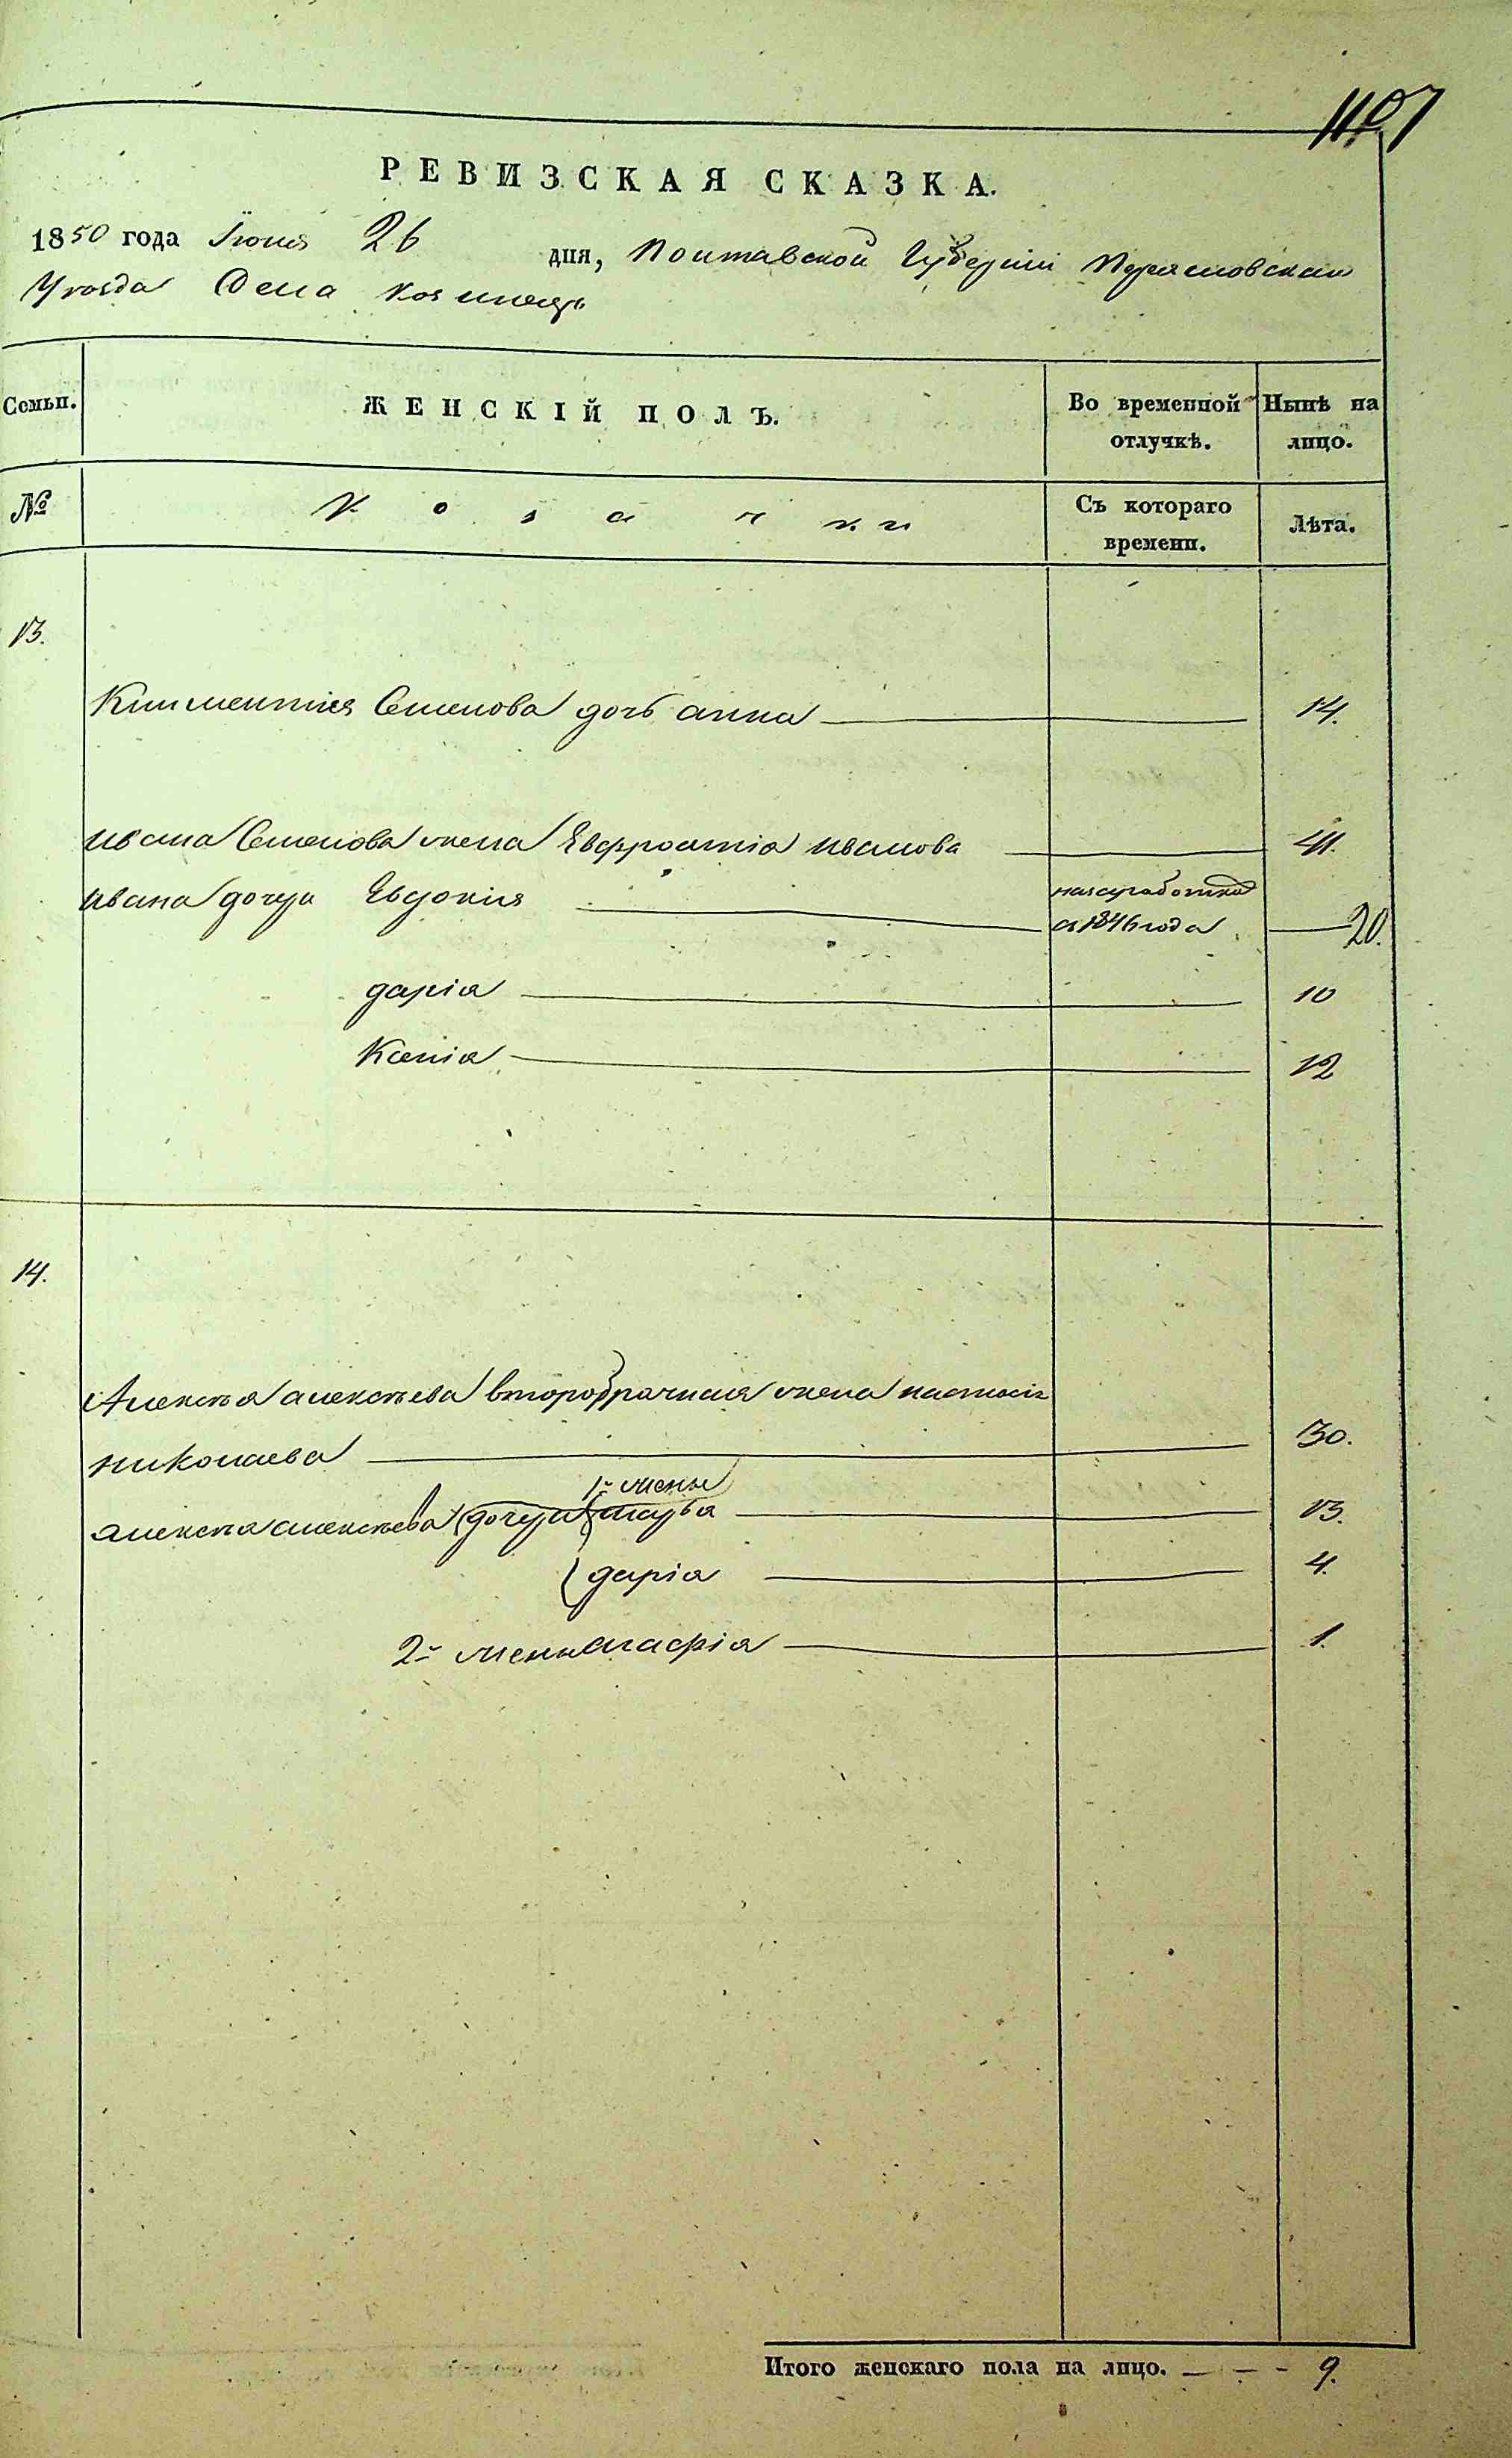 1107
РЕВИЗСКАЯ СКАЗКА.
1850 года Іюня 26 дня, Полтавской Губерніи Переяславскаго
Уезда Села
Семьи. ЖЕНСКІЙ ПОЛЪ. Во временной отлучкѣ. Нынѣ на лицо.
№ Козачки Съ котораго времени. Лѣта.
13.
Климентія Семенова дочь анна 14.
ивана Семенова жена Евфросинія иванова 41.
ивана дочери Евдокія на заработках с 1846 года 20.
дарія 10
Ксенія 12
14.
Алексѣя алексѣева второбрачная жена настасія
николаева 30.
1й жены
алексѣя алексѣева дочери марья 13.
дарія 4.
2й жены агафія 1.
Итого женскаго пола на лицо. — — - 9.